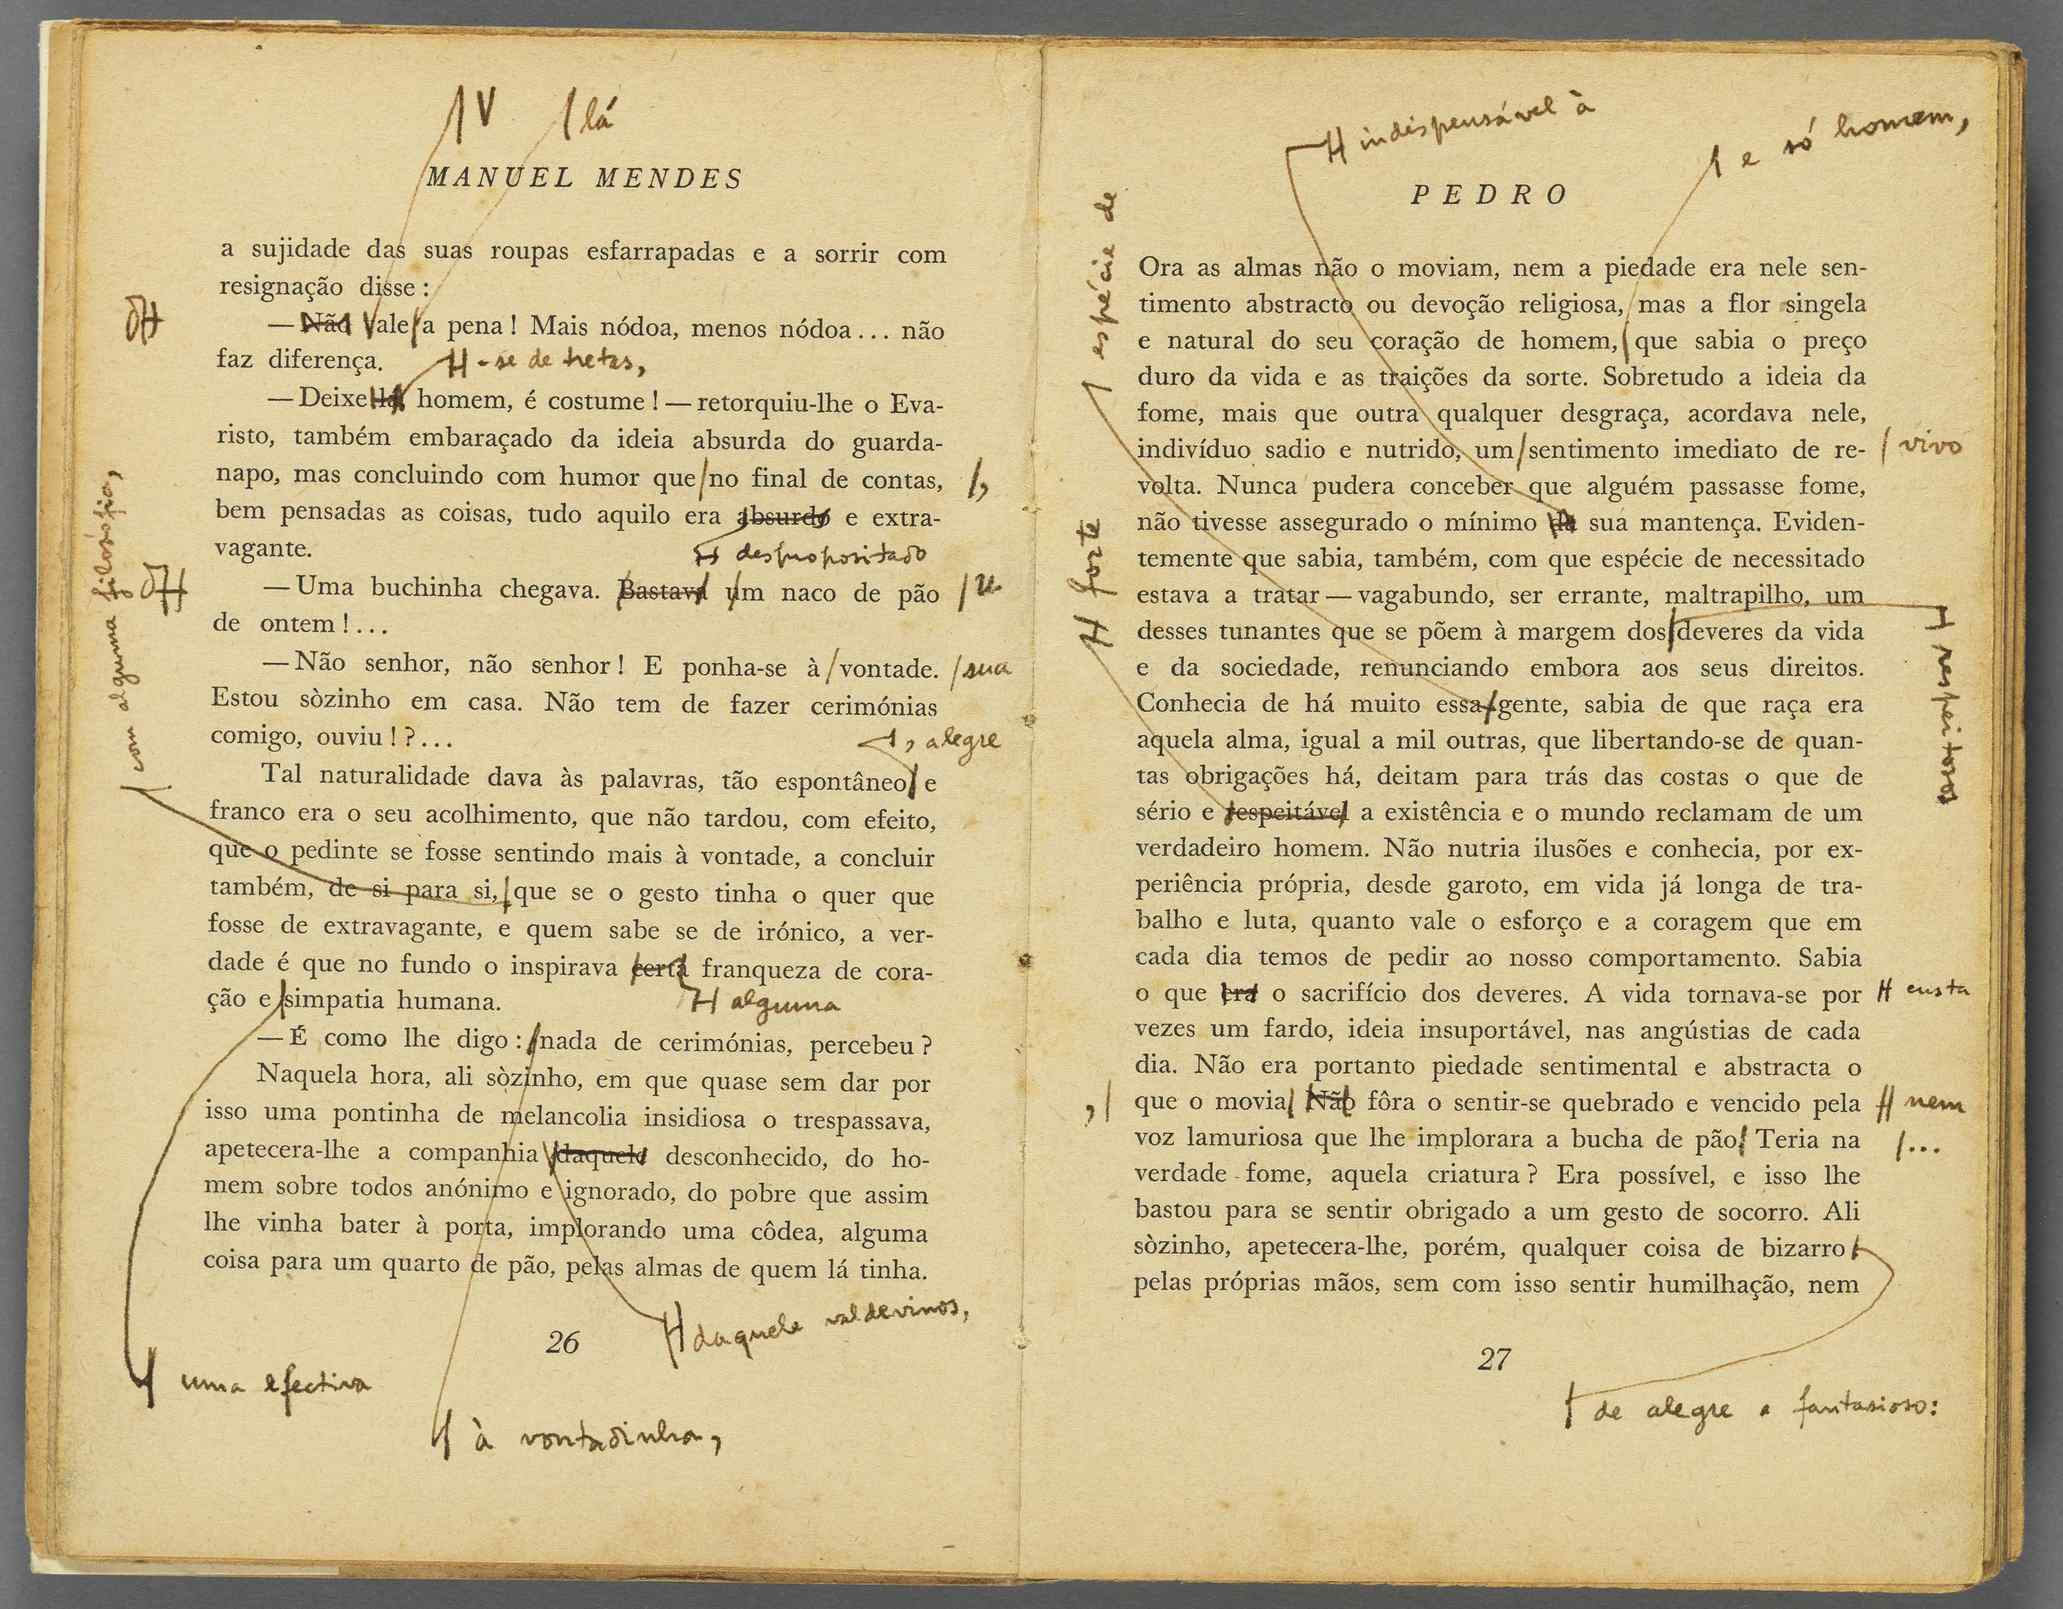 V lá
MANUEL MENDES
a sujidade das suas roupas esfarrapadas e a sorrir com
resignação disse:
— Não vale a pena! Mais nódoa, menos nódoa... não
faz diferença.
-se de tretas,
— Deixe lá, homem, é costume! — retorquiu-lhe o Eva-
risto, também embaraçado da ideia absurda do guarda-
napo, mas concluindo com humor que no final de contas,
,
bem pensadas as coisas, tudo aquilo era absurdo e extra-
vagante.
despropositado
— Uma buchinha chegava. Bastava um naco de pão
U
de ontem!...
— Não senhor, não senhor! E ponha-se à vontade.
sua
Estou sòzinho em casa. Não tem de fazer cerimónias
comigo, ouviu!?...
, alegre
Tal naturalidade dava às palavras, tão espontâneo e
franco era o seu acolhimento, que não tardou, com efeito,
que o pedinte se fosse sentindo mais à vontade, a concluir
também, de si para si, que se o gesto tinha o quer que
com alguma filosofia,
fosse de extravagante, e quem sabe se de irónico, a ver-
dade é que no fundo o inspirava certa franqueza de cora-
ção e simpatia humana.
alguma
— É como lhe digo: nada de cerimónias, percebeu?
Naquela hora, ali sòzinho, em que quase sem dar por
isso uma pontinha de melancolia insidiosa o trespassava,
apetecera-lhe a companhia daquele desconhecido, do ho-
mem sobre todos anónimo e ignorado, do pobre que assim
lhe vinha bater à porta, implorando uma côdea, alguma
coisa para um quarto de pão, pelas almas de quem lá tinha.
26
daquele valdevinos,
uma efectiva
à vontadinha,
indispensável à
e só homem,
PEDRO
espécie de
Ora as almas não o moviam, nem a piedade era nele sen-
timento abstracto ou devoção religiosa, mas a flor singela
e natural do seu coração de homem, que sabia o preço
duro da vida e as traições da sorte. Sobretudo a ideia da
fome, mais que outra qualquer desgraça, acordava nele,
indivíduo sadio e nutrido, um sentimento imediato de re-
vivo
volta. Nunca pudera conceber que alguém passasse fome,
não tivesse assegurado o mínimo da sua mantença. Eviden-
temente que sabia, também, com que espécie de necessitado
forte
estava a tratar — vagabundo, ser errante, maltrapilho, um
desses tunantes que se põem à margem dos deveres da vida
respeitosos
e da sociedade, renunciando embora aos seus direitos.
Conhecia de há muito essa gente, sabia de que raça era
aquela alma, igual a mil outras, que libertando-se de quan-
tas obrigações há, deitam para trás das costas o que de
sério e respeitável a existência e o mundo reclamam de um
verdadeiro homem. Não nutria ilusões e conhecia, por ex-
periência própria, desde garoto, em vida já longa de tra-
balho e luta, quanto vale o esforço e a coragem que em
cada dia temos de pedir ao nosso comportamento. Sabia
o que era o sacrifício dos deveres. A vida tornava-se por
custa
vezes um fardo, ideia insuportável, nas angústias de cada
dia. Não era portanto piedade sentimental e abstracta o
que o movia. Não fôra o sentir-se quebrado e vencido pela
, nem
voz lamuriosa que lhe implorara a bucha de pão. Teria na
...
verdade fome, aquela criatura? Era possível, e isso lhe
bastou para se sentir obrigado a um gesto de socorro. Ali
sòzinho, apetecera-lhe, porém, qualquer coisa de bizarro
pelas próprias mãos, sem com isso sentir humilhação, nem
27
de alegre e fantasioso: